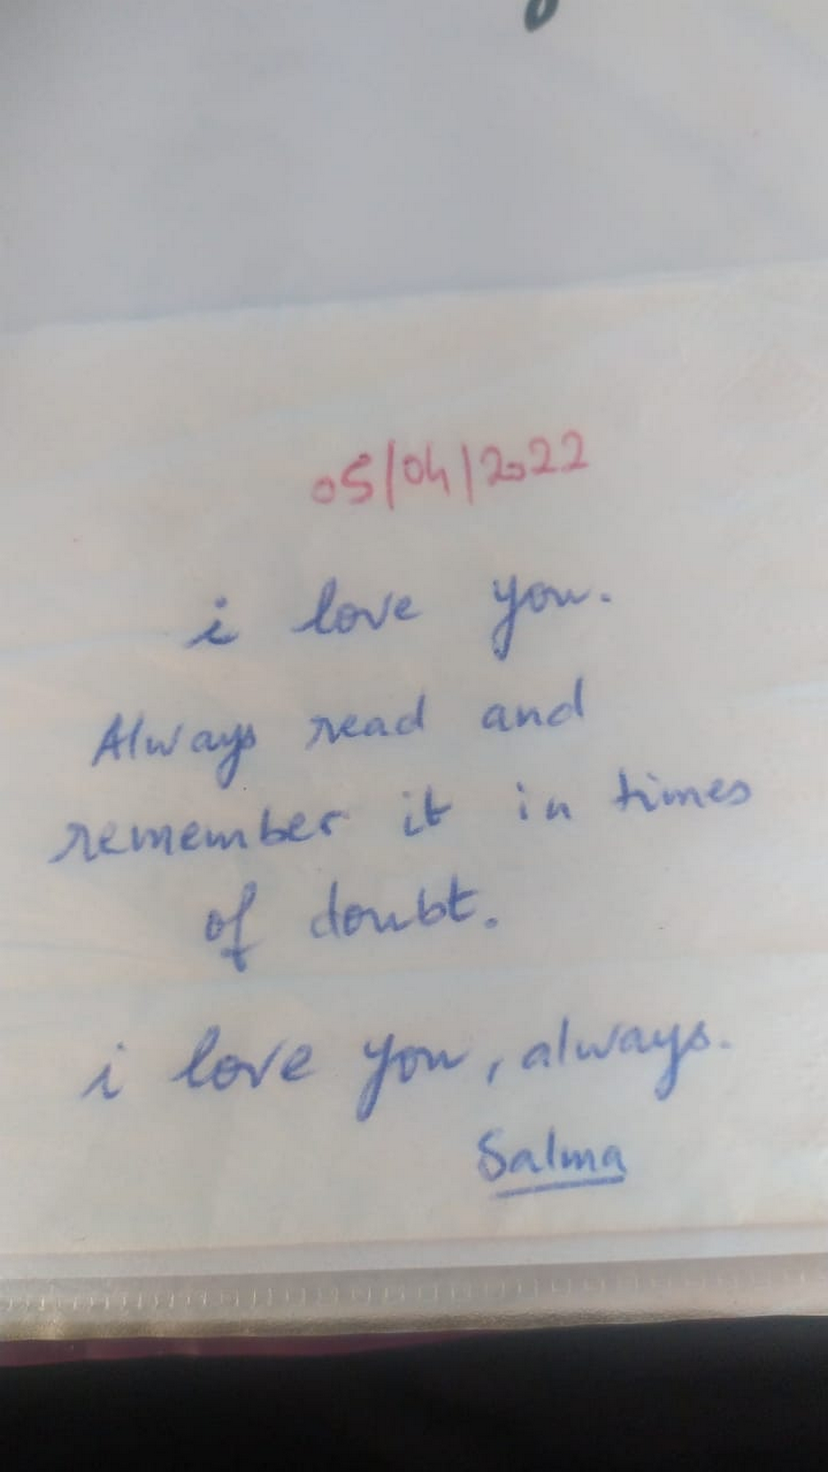 05/04/2022
i love you.
Always read and
remember it in times
of doubt.
i love you, always.
Salma